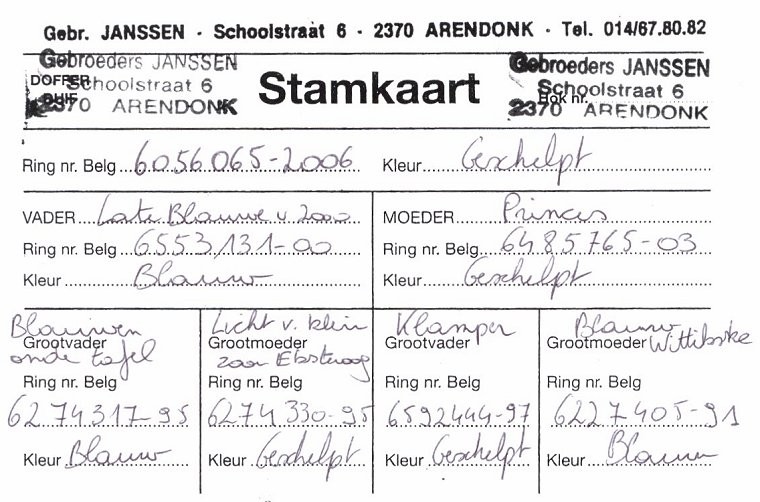 Gebr. JANSSEN - Schoolstraat 6 - 2370 ARENDONK - Tel. 014/67.80.82
Gebroeders JANSSEN
DOFFER Schoolstraat 6
DUIF 2370 ARENDONK
Stamkaart
Gebroeders JANSSEN
Schoolstraat 6
Hok nr.
2370 ARENDONK
Ring nr. Belg 6056065-2006 Kleur Geschelpt
VADER Late Blauwe v 2000 MOEDER Princes
Ring nr. Belg 6553131-00 Ring nr. Belg 6485765-03
Kleur Blauw Kleur Geschelpt
Blauwen Licht v. klein Klamper Blauw
Grootvader Grootmoeder Grootvader Grootmoeder Wittibske
onde tafel zoon
Ring nr. Belg Ring nr. Belg Ring nr. Belg Ring nr. Belg
6274317-95 6274330-95 6592444-97 6227405-91
Kleur Blauw Kleur Geschelpt Kleur Geschelpt Kleur Blauw